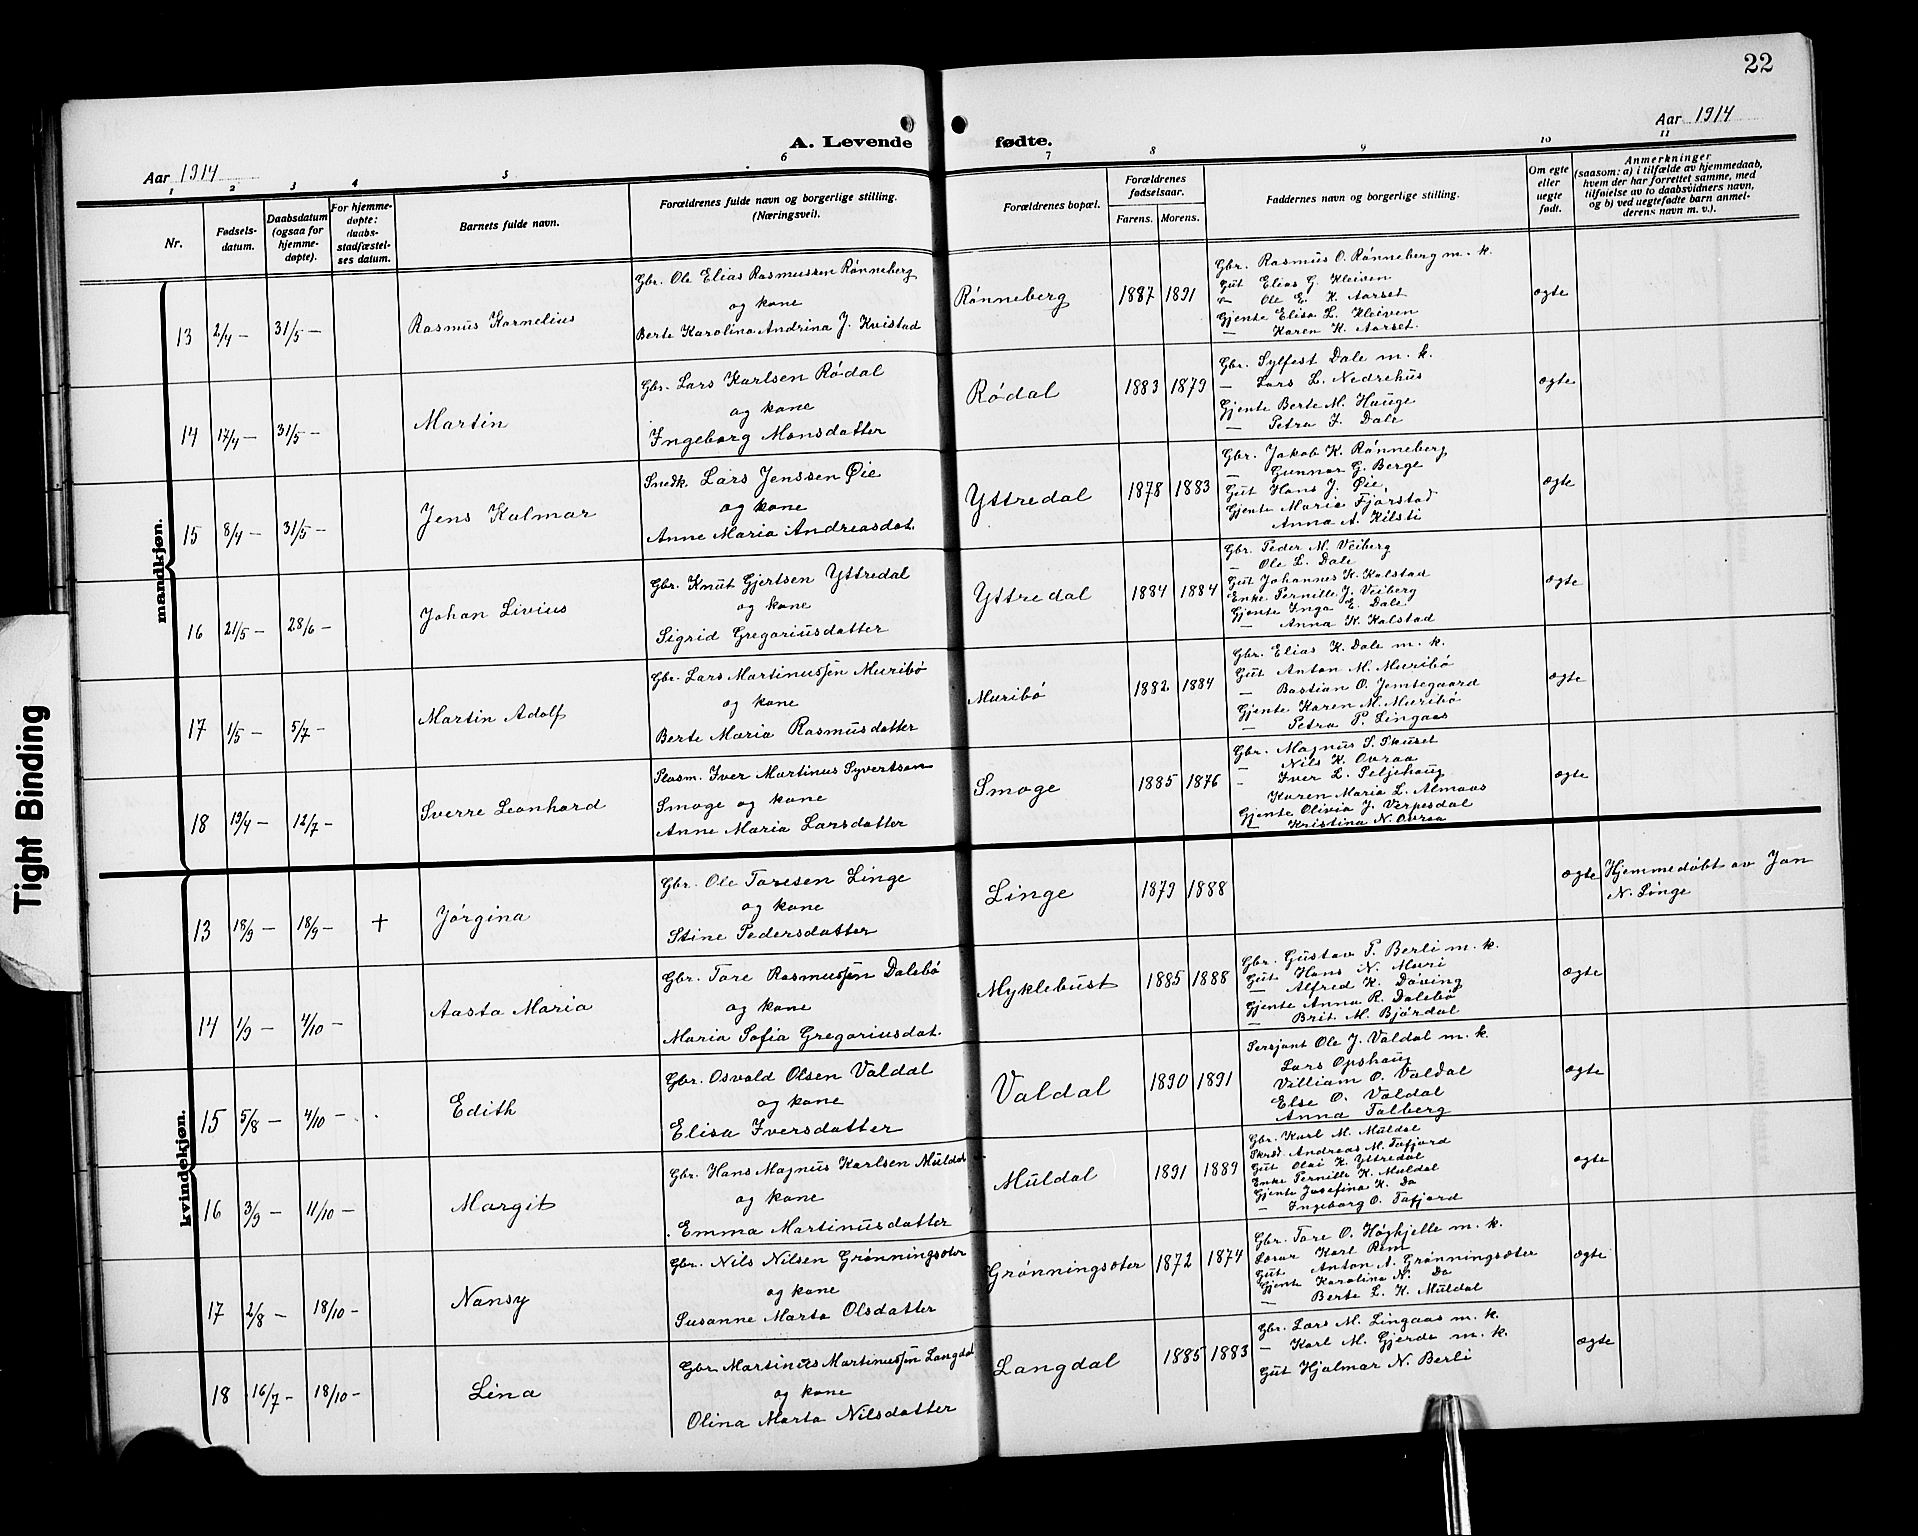 22
Aar 1914
A. Levende fødte.
Aar 1914
1 2 3 4 5 6 7 8 9 10 11
Nr.
Fødsels-
datum.
Daabsdatum
(ogsaa for
hjemme-
døpte).
For hjemme-
døpte:
daabs-
stadfæstel-
ses datum.
Barnets fulde navn.
Forældrenes fulde navn og borgerlige stilling.
(Næringsvei).
Forældrenes bopæl.
Forældrenes
fødselsaar.
Farens. Morens.
Faddernes navn og borgerlige stilling.
Om egte
eller
uegte
født.
Anmerkninger
(saasom: a) i tilfælde av hjemmedaab,
hvem der har forrettet samme, med
tilføielse av to daabsvidners navn,
og b) ved uegtefødte barn anmel-
derens navn m. v.).
mandkjøn.
13 2/4 – 31/5 – Rasmus Kornelius
Gbr. Ole Elias Rasmussen Rønneberg
og kone
Berte Karolina Andrina J. Kvistad
Rønneberg 1887 1891
Gbr. Rasmus O. Rønneberg m. k.
Gut Elias G. Kleiven
" Ole E. K. Aarset
Gjente Elisa L. Kleiven
– Karen K. Aarset.
ægte
14 17/4 – 31/5 – Martin
Gbr. Lars Karlsen Rødal
og kone
Ingeborg Monsdatter
Rødal 1883 1879
Gbr. Sylfest Dale m. k.
– Lars L. Nedrehus
Gjente Berte M. Hauge
– Petra J. Dale
ægte
15 8/4 – 31/5 – Jens Kalmar
Snedk. Lars Jenssen Øie
og kone
Anne Maria Andreasdat.
Yttredal 1878 1883
Gbr. Jakob K. Rønneberg
– Gunnar G. Berge
Gut Hans J. Øie
Gjente Maria Fjørstad
Anna A. Kilsti
ægte
16 21/5 – 28/6 – Johan Livius
Gbr. Knut Gjertsen Yttredal
og kone
Sigrid Gregoriusdatter
Yttredal 1884 1884
Gbr. Peder M. Veiberg
– Ole L. Dale
Gut Johannes K. Kalstad
Enke Pernille J. Veiberg
Gjente Inga E. Dale
– Anna K. Kalstad
ægte
17 1/5 – 5/7 – Martin Adolf
Gbr. Lars Martinussen Muribø
og kone
Berte Maria Rasmusdatter
Muribø 1882 1884
Gbr. Elias K. Dale m. k.
Gut Anton M. Muribø
– Bastian O. Jemtegaard
Gjente Karen M. Muribø
– Petra P. Lingaas
ægte
18 19/4 – 12/7 – Sverre Leonhard
Plasm. Iver Martinus Syvertsen
Smoge og kone
Anne Maria Larsdatter
Smoge 1885 1876
Gbr. Magnus S. Skuset
– Nils K. Ovraa
– Iver L. Seljehaug
Karen Maria L. Almaas
Gjente Olivia J. Verpesdal
– Kristina N. Ovraa
ægte
kvindekjøn.
13 18/9 – 18/9 – + Jørgina
Gbr. Ole Toresen Linge
og kone
Stine Pedersdatter
Linge 1879 1888
ægte
Hjemmedøbt av Jon
N. Linge
14 1/9 – 4/10 – Aasta Maria
Gbr. Tore Rasmussen Dalebø
og kone
Maria Sofia Gregoriusdat.
Myklebust 1885 1888
Gbr. Gustav P. Berli m. k.
Gut Hans N. Muri
– Alfred K. Døving
Gjente Anna R. Dalebø
– Brit M. Bjørdal
ægte
15 5/8 – 4/10 – Edith
Gbr. Osvald Olsen Valdal
og kone
Elisa Iversdatter
Valdal 1890 1891
Sersjant Ole J. Valdal m. k.
Lars Opshaug
Villiam O. Valdal
Else O. Valdal
Anna Talberg
ægte
16 3/9 – 11/10 – Margit
Gbr. Hans Magnus Karlsen Muldal
og kone
Emma Martinusdatter
Muldal 1891 1889
Gbr. Karl M. Muldal
Skrsd. Andreas M. Tafjord
Gut Olai K. Yttredal
Enke Pernille K. Muldal
Gjente Josefina K. Do
– Ingeborg O. Tafjord
ægte
17 2/8 – 18/10 – Nansy
Gbr. Nils Nilsen Grønningsæter
og kone
Susanne Marta Olsdatter
Grønningsæter 1872 1874
Gbr. Tore O. Høgkjelle m. k.
Lærar Karl Rem
Gut Anton A. Grønningsæter
Gjente Karolina N. Do
– Berte L. K. Muldal
ægte
18 16/7 – 18/10 – Lina
Gbr Martinus Martinussen Langdal
og kone
Olina Marta Nilsdatter
Langdal 1885 1883
Gbr. Lars M. Lingaas m. k.
– Karl M. Gjerde m. k.
Gut Hjalmar N. Berli
ægte
Tight Binding